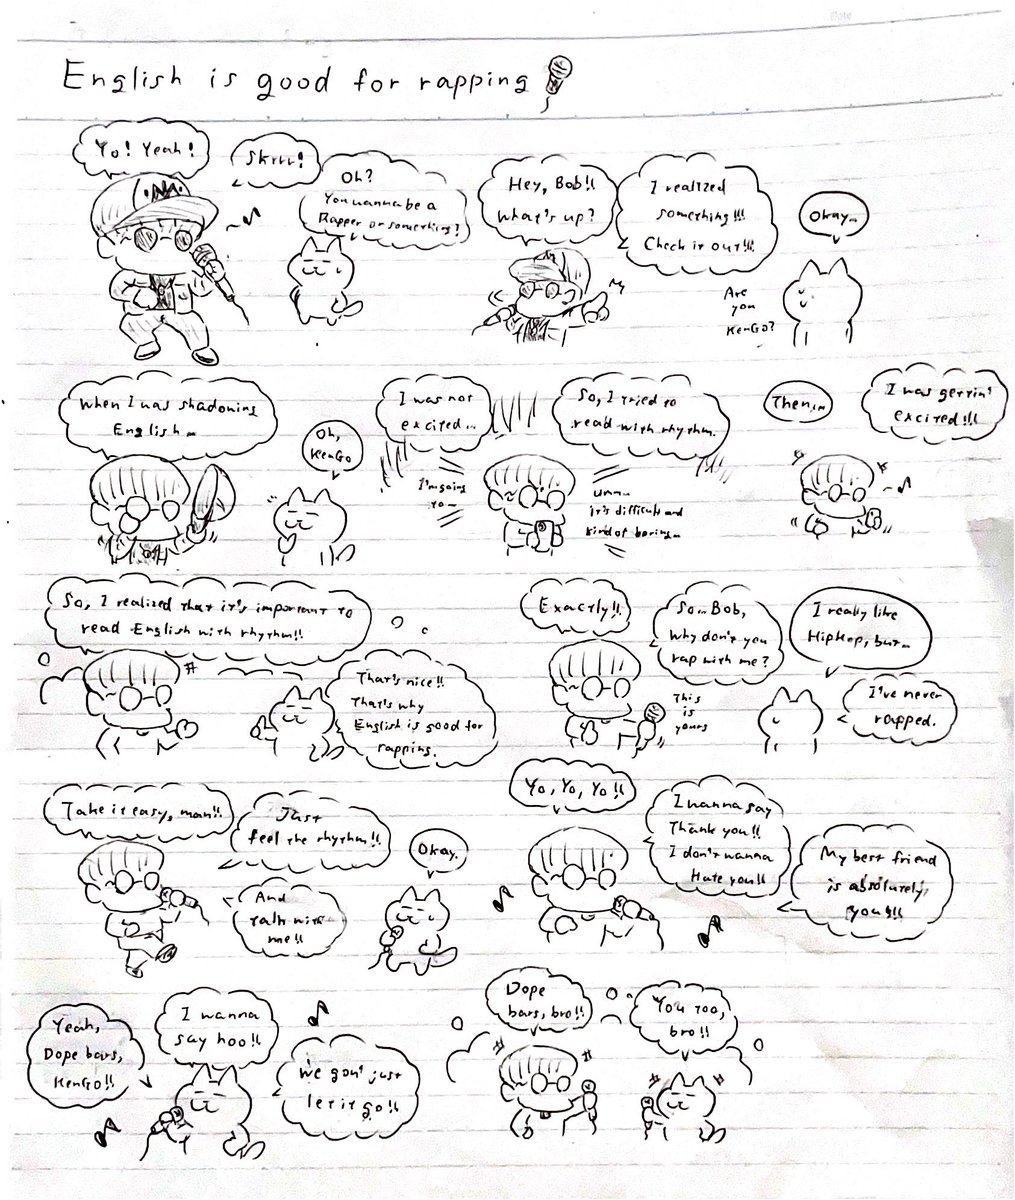 English is good for rapping
Yo! Yeah!
Skrrr!
Oh?
You wanna be a
Rapper or something?
Hey, Bob!!
What's up?
I realized
something!!!
Check it out!!!
Okay...
Are
you
KenGo?
When I was shadowing
English...
Oh,
KenGo
I was not
excited...
I'm going
to...
So, I tried to
read with rhythm.
Umm...
it's difficult and
kind of boring...
Then...
I was gettin'
excited!!!
So, I realized that it's important to
read English with rhythm!!
That's nice!!
That's why
English is good for
rapping.
Exactly!!
So... Bob,
Why don't you
rap with me?
This
is
yours
I really like
HipHop, but...
I've never
rapped.
Take it easy, man!!
Just
feel the rhythm!!
And
Talk with
me!!
Okay.
Yo, Yo, Yo!!
I wanna say
Thank you!!
I don't wanna
Hate you!!
My best friend
is absolutely
you!!!
Yeah,
Dope bars,
KenGo!!
I wanna
say hoo!!
We gon' just
let it go!!
Dope
bars, bro!!
You too,
bro!!